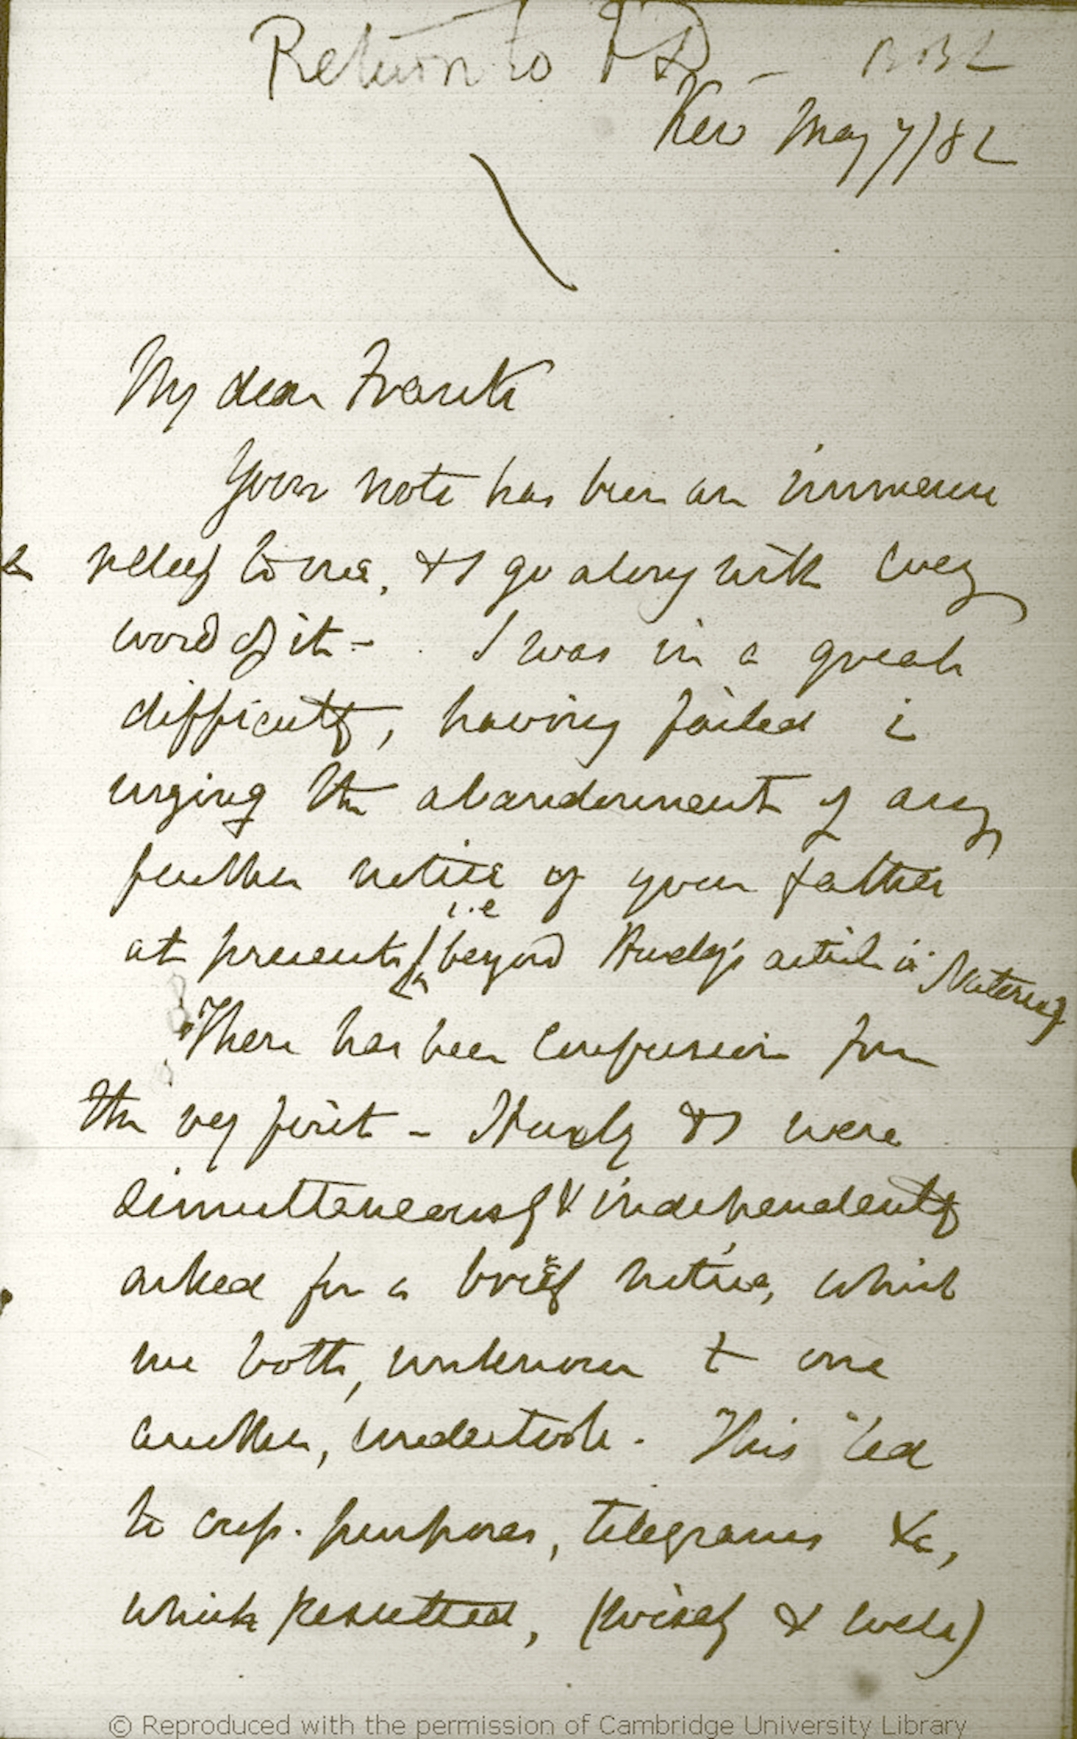 Return to FD —
Kew May 7/82
My dear Frank
Your note has been an immense
relief to me, & I go along with every
word of it — I was in a great
difficulty, having failed i
urging the abandonment of any
further notice of your father
at present, i.e beyond Huxley's article in Nature
There has been confusion from
the very first — Huxley & I were
simultaneously & independently
asked for a brief notice, which
we both, unknown to one
another, undertook. This led
to cross purposes, telegrams &c,
which resulted, (wisely & well)
© Reproduced with the permission of Cambridge University Library